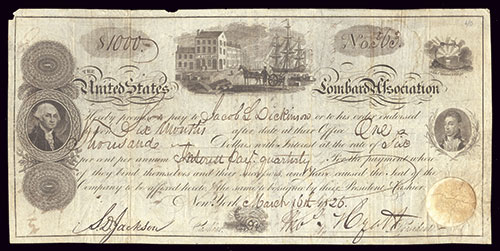 $1000.-
No. 363.
THE United States Lombard Association
Hereby promise to pay to Jacob S. Dickinson or to his order endorsed
hereon Six Months after date at their Office One
Thousand Dollars with Interest at the rate of Six
per cent per annum Interest pay. quarterly For the payment where
of they bind themselves and their successors and have caused the Seal of the
Company to be affixed hereto The same to be signed by their President & Cashier
New York March 16th 1826.
S. D. Jackson Cashier Thos. Hyatt President